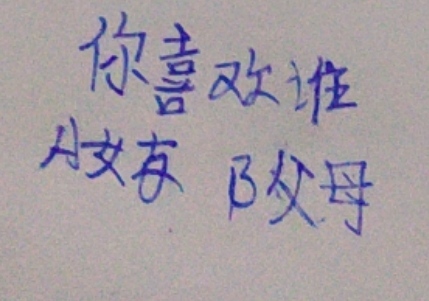 你喜欢谁
A女友 B父母